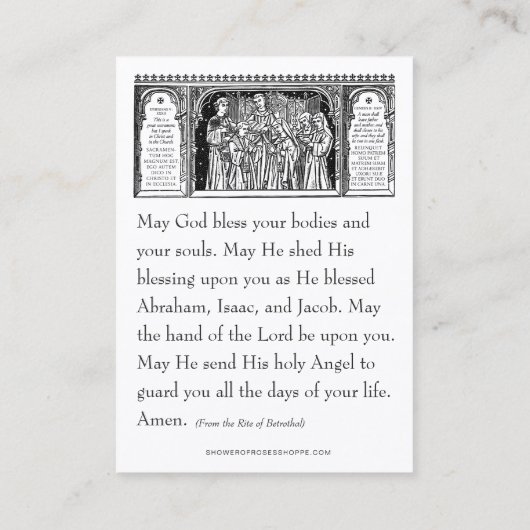 EPHESIANS V.
XXXII
This is a
great sacrament,
but I speak
in Christ and
in the Church.
SACRAMEN-
TUM HOC
MAGNUM EST,
EGO AUTEM
DICO IN
CHRISTO ET
IN ECCLESIA.
GENESIS II. XXIV
A man shall
leave father
and mother, and
shall cleave to his
wife: and they shall
be two in one flesh.
RELINQUET
HOMO PATREM
SUUM ET
MATREM
ET ADHÆREBIT
UXORI SUÆ
ET ERUNT DUO
IN CARNE UNA.
May God bless your bodies and
your souls. May He shed His
blessing upon you as He blessed
Abraham, Isaac, and Jacob. May
the hand of the Lord be upon you.
May He send His holy Angel to
guard you all the days of your life.
Amen. (From the Rite of Betrothal)
SHOWEROFROSESSHOPPE.COM